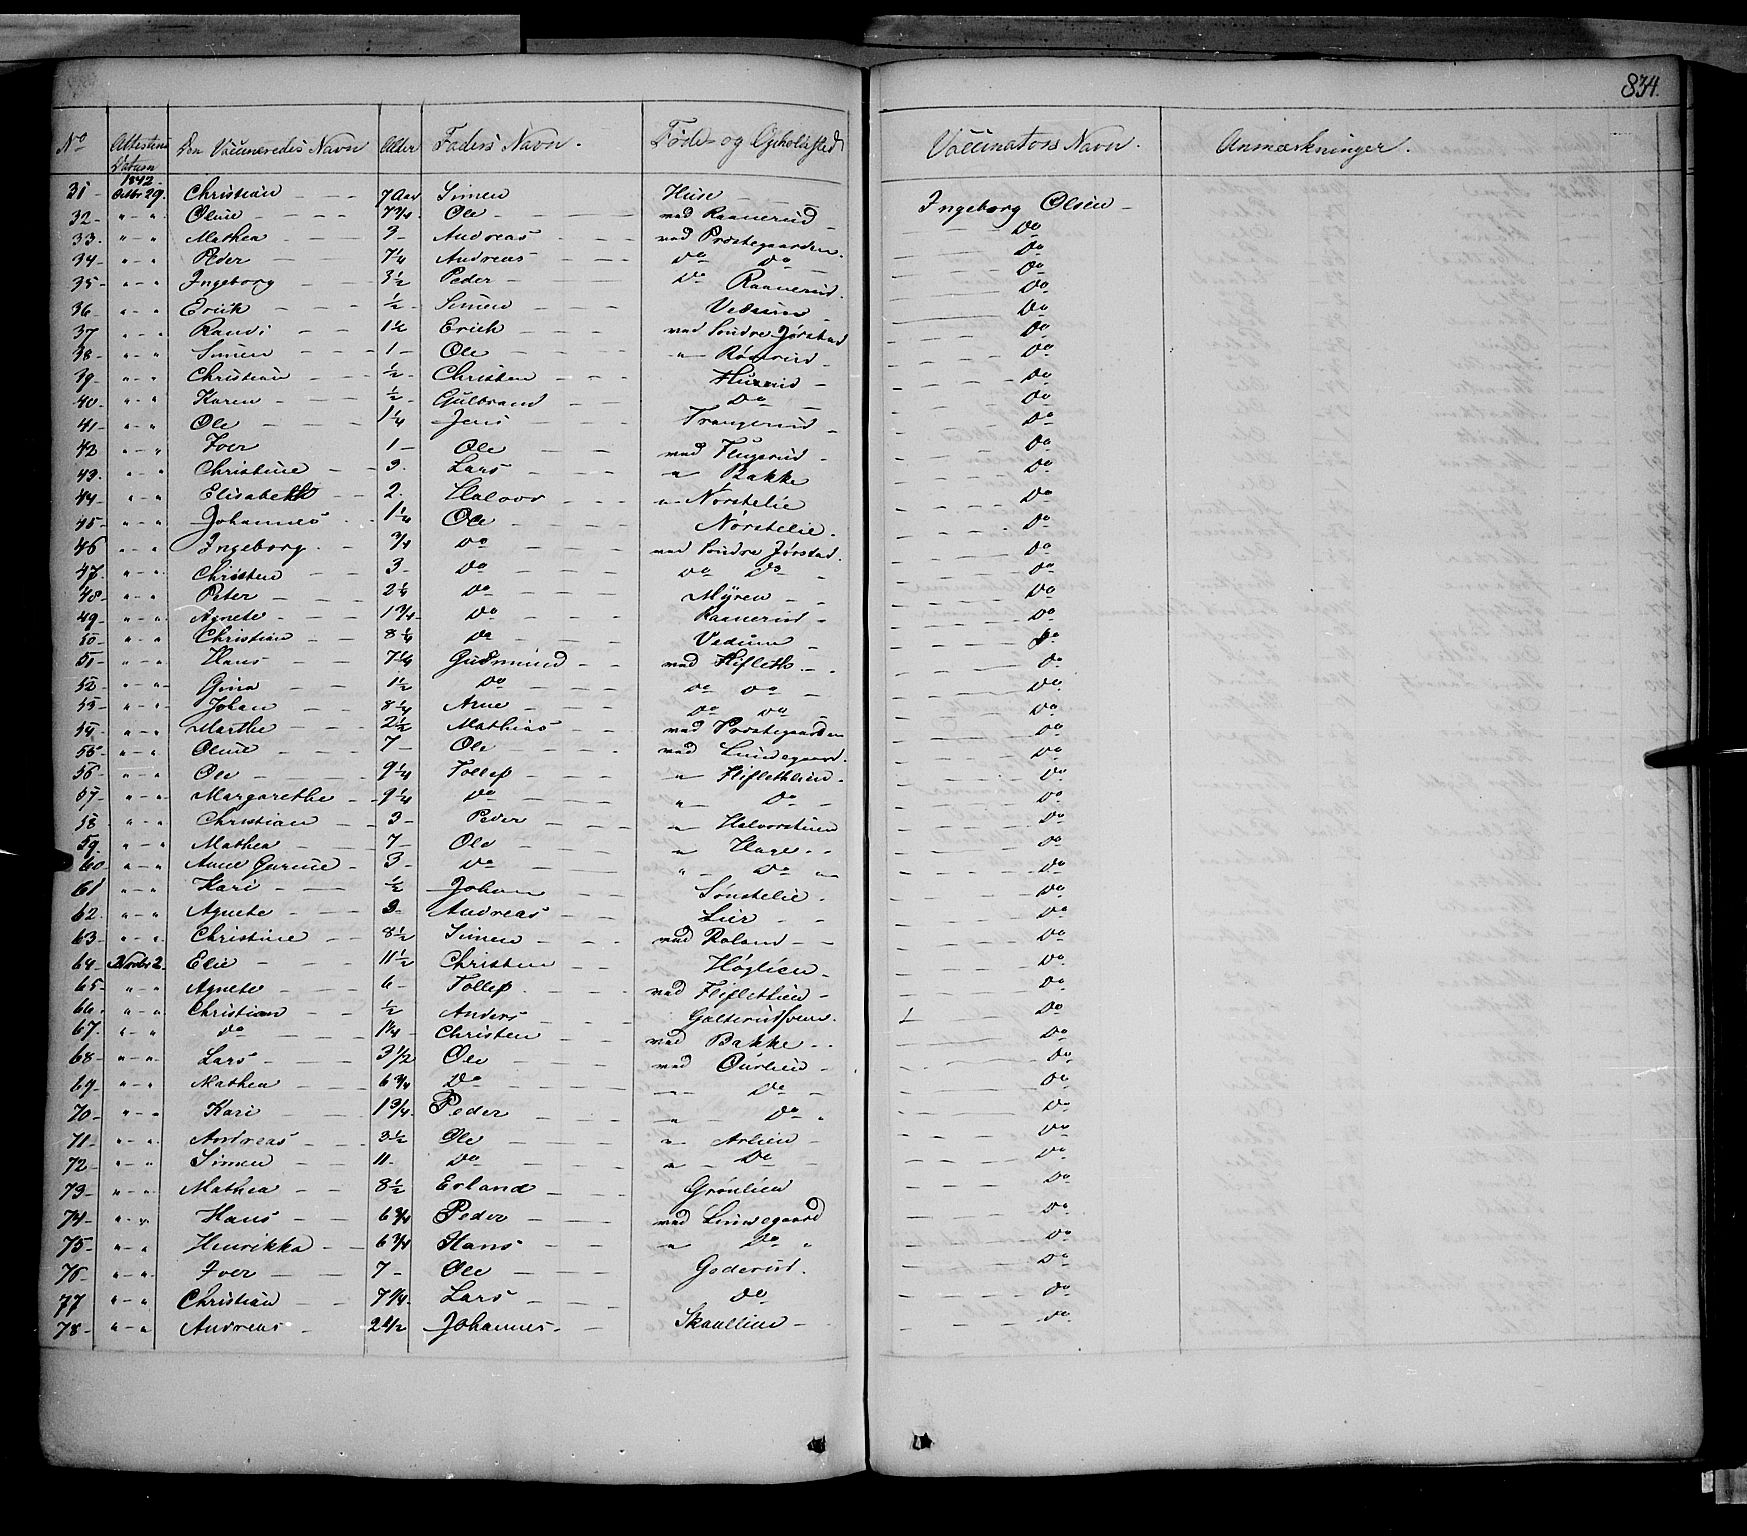 834.
No Attestens Datum Den Vaccineredes Navn Alder Faders Navn. Føde- og Opholdssted Vaccinators Navn. Anmærkninger.
1842
31 - Octbr 29. Christian 7 Aar Simen Huse Ingeborg Olsen -
32 - " - " Oline 7 3/4 Ole ved Raanerud Do
33. " - " Mathea 3 - Andreas ved Præstegaarden Do
34 - " - " Peder 7 1/4 Andreas Do Do Do
35 - " - " Ingeborg 3 1/2 Peder Do Raanerud. Do
36 " - " Erick 1/2 Simen Vedum Do
37 " - " Randi 1 1/2 Erich ved Søndre Jørstad Do
38 - " - " Simen 1 - Ole " Do
39 - " - " Christian 1/2 Christen Do
40 - " - " Karen 1/2 Gulbrand Do Do
41 - " - " Ole 1 1/4 Jens Do
42 " - " Iver 1 - Ole ved Do
43. " - " Christine 3. Lars " Bakke Do
44 - " - " Elisabeth 2. Halvor " Norstelie Do
45 - " - " Johannes 1 1/4 Ole Norstelie. Do
46 " - " Ingeborg. 3/4 Do ved Søndre Jørstad. Do
47. " - " Christen 3 - Do Do Do Do
48 - " - " Peter 2 1/4 Do Myren Do
49 - " - " Agnete 1 3/4 Do Raanerud Do
50 - " - " Christian 8 1/4 Do Vedum Do
51 - " - " Hans 7 1/4 Gudmund ved Flifleth Do
52 - " - " Gina 1 1/2 Do Do Do Do
53 - " - " Johan 8 1/4 Arne Do Do Do
54 - " - " Marthe 2 1/2 Mathias ved Præstegaarden Do
55 - " - " Oline 7 - Ole ved Lundegaard. Do
56 - " - " Ole 9 1/4 Tollef " Fliflethlien Do
57 - " - " Margarethe 9 1/4 Do " Do Do
58 - " - " Christian 3 - Peder " Halvorstuen Do
59. " - " Mathea 7 - Ole " Hage Do
60 - " - " Anne Gurine 3 - Do " Do Do
61 " - " Kari 1/2 Johan Sønstelie. Do
62. " - " Agnete 3 - Andreas Lier Do
63 - " - " Christine 8 1/2 Simen ved Do
64 - Novbr 2. Elie 11 1/2 Christen Høglien Do
65 - " - " Agnete 6 - Tollef ved Fliflethlien Do
66 - " - " Christian 1/2 Anders Do
67. " - " Do 1 1/4 Christen ved Bakke Do
68 - " - " Lars 3 1/2 Ole ved Do
69 - " - " Mathea 6 3/4 Do Do Do
70 - " - " Kari 1 3/4 Peder " Do Do
71 - " - " Andreas 3 1/2 Ole " Do
72 - " - " Simen 11 - Do " Do Do
73 - " - " Mathea 8 1/2 Erland Grønlien Do
74 - " - " Hans 6 3/4 Peder ved Lundegaard Do
75 - " - " Henrikka 6 3/4 Hans " Do Do
76 - " - " Iver 7 - Ole Goderud. Do
77 " - " Christian 7 3/4 Lars Do Do
78 - " - " Andreas 2 1/2 Johannes. Skaullien Do